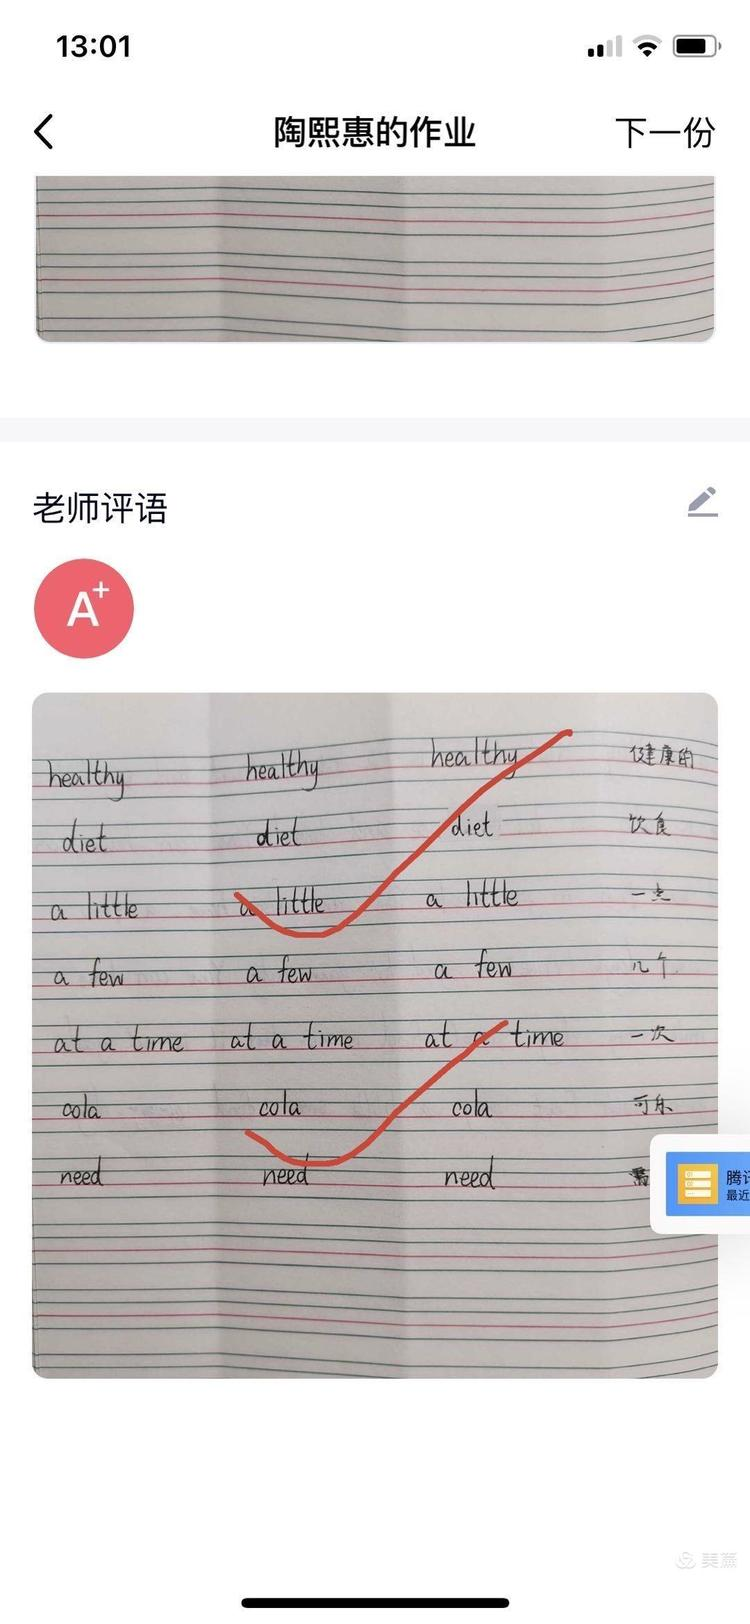 13:01
陶熙惠的作业 下一份
老师评语
A+
healthy healthy healthy 健康的
diet diet diet 饮食
a little a little a little 一点
a few a few a few 几个
at a time at a time at a time 一次
cola cola cola 可乐
need need need 需
腾讯
最近
美篇